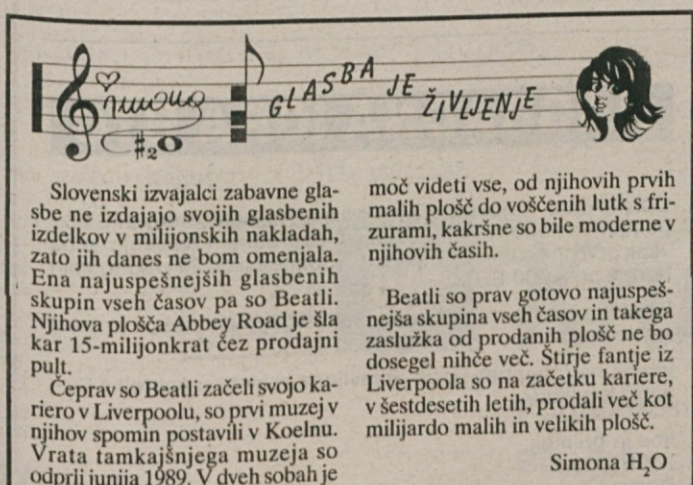 Simona
#₂O
GLASBA JE ŽIVLJENJE
Slovenski izvajalci zabavne gla-
sbe ne izdajajo svojih glasbenih
izdelkov v milijonskih nakladah,
zato jih danes ne bom omenjala.
Ena najuspešnejših glasbenih
skupin vseh časov pa so Beatli.
Njihova plošča Abbey Road je šla
kar 15-milijonkrat čez prodajni
pult.
Čeprav so Beatli začeli svojo ka-
riero v Liverpoolu, so prvi muzej v
njihov spomin postavili v Koelnu.
Vrata tamkajšnjega muzeja so
odprli junija 1989. V dveh sobah je
moč videti vse, od njihovih prvih
malih plošč do voščenih lutk s fri-
zurami, kakršne so bile moderne v
njihovih časih.
Beatli so prav gotovo najuspeš-
nejša skupina vseh časov in takega
zaslužka od prodanih plošč ne bo
dosegel nihče več. Štirje fantje iz
Liverpoola so na začetku kariere,
v šestdesetih letih, prodali več kot
milijardo malih in velikih plošč.
Simona H₂O